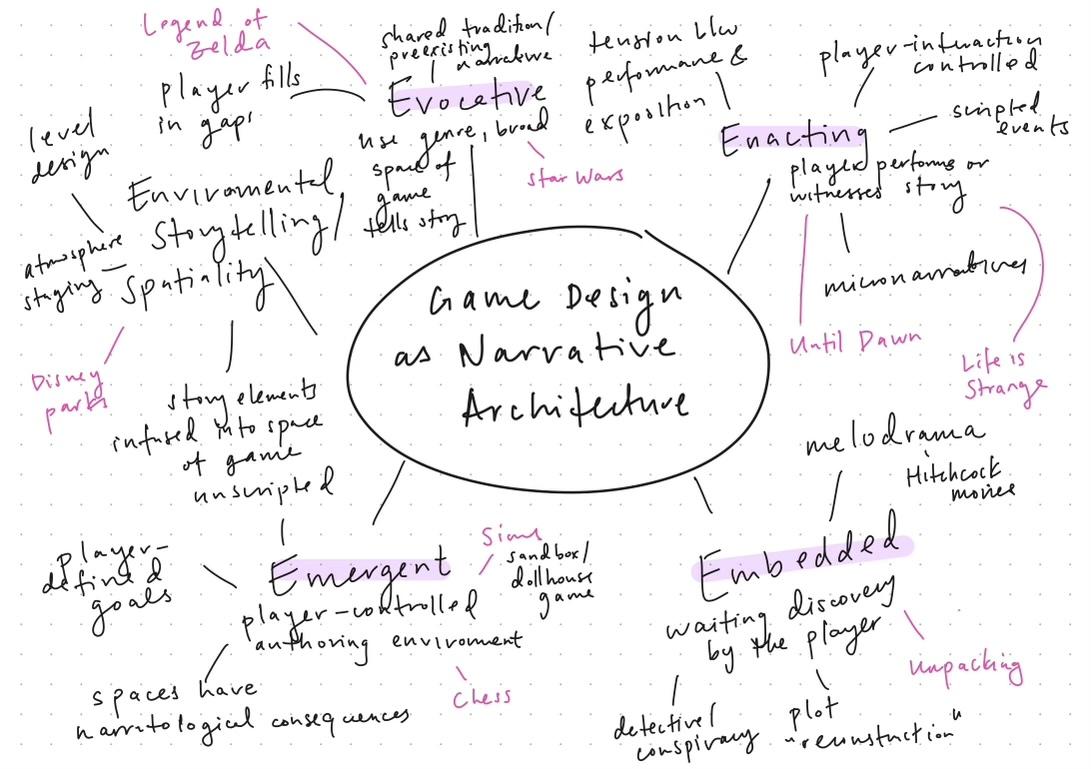 Legend of
Zelda
player fills
in gaps
shared tradition/
preexisting
narrative
Evocative
use genre, broad
space of
game
tells story
Star Wars
tension b/w
performane &
exposition
player-interaction
controlled
scripted
events
Enacting
player performs or
witnesses story
micronarratives
Until Dawn
Life is
Strange
level
design
Enviromental
Storytelling/
Spatiality
atmosphere
staging
Disney
parks
story elements
infused into space
of game
Game Design
as Narrative
Architecture
unscripted
Emergent
player-controlled
authoring enviroment
player-
defined
goals
Sims
sandbox/
dollhouse
game
Chess
spaces have
narratological consequences
melodrama
Hitchcock
movies
Embedded
waiting discovery
by the player
Unpacking
detective/
conspiracy
plot
"reconstruction"